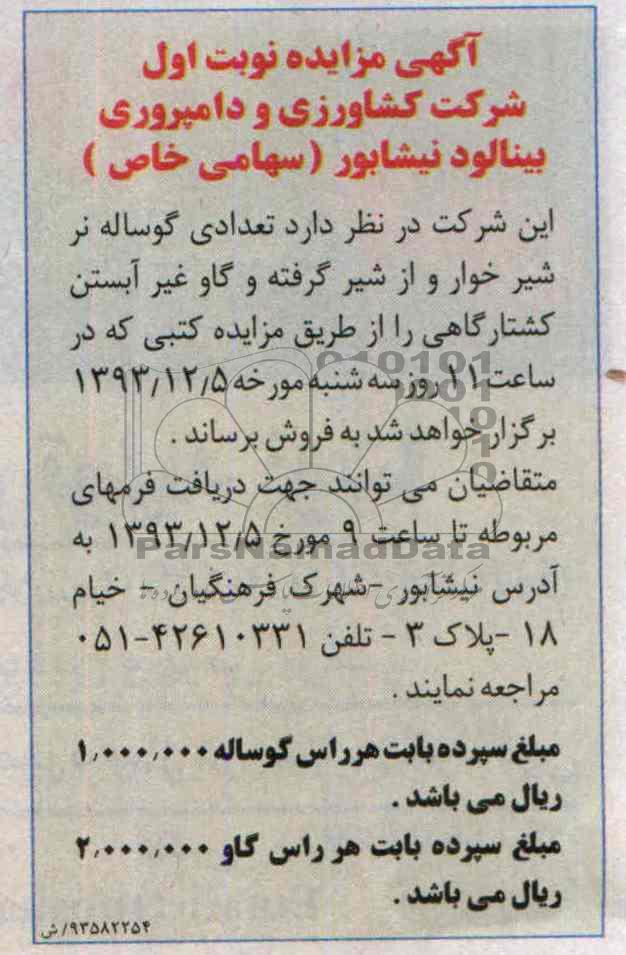 آگهی مزایده نوبت اول
شرکت کشاورزی و دامپروری
بینالود نیشابور (سهامی خاص)
این شرکت در نظر دارد تعدادی گوساله نر
شیر خوار و از شیر گرفته و گاو غیر آبستن
کشتارگاهی را از طریق مزایده کتبی که در
ساعت ۱۱ روز سه شنبه مورخه ۱۳۹۳/۱۲/۵
برگزار خواهد شد به فروش برساند .
متقاضیان می توانند جهت دریافت فرمهای
مربوطه تا ساعت ۹ مورخ ۱۳۹۳/۱۲/۵ به
ParsNomadData
آدرس نیشابور -شهرک فرهنگیان - خیام
۱۸ -پلاک ۳ - تلفن ۴۲۶۱۰۳۳۱-۰۵۱
مراجعه نمایند .
مبلغ سپرده بابت هر راس گوساله ۱,۰۰۰,۰۰۰
ریال می باشد .
مبلغ سپرده بابت هر راس گاو ۲,۰۰۰,۰۰۰
ریال می باشد .
۹۳۵۸۲۲۵۴/ش